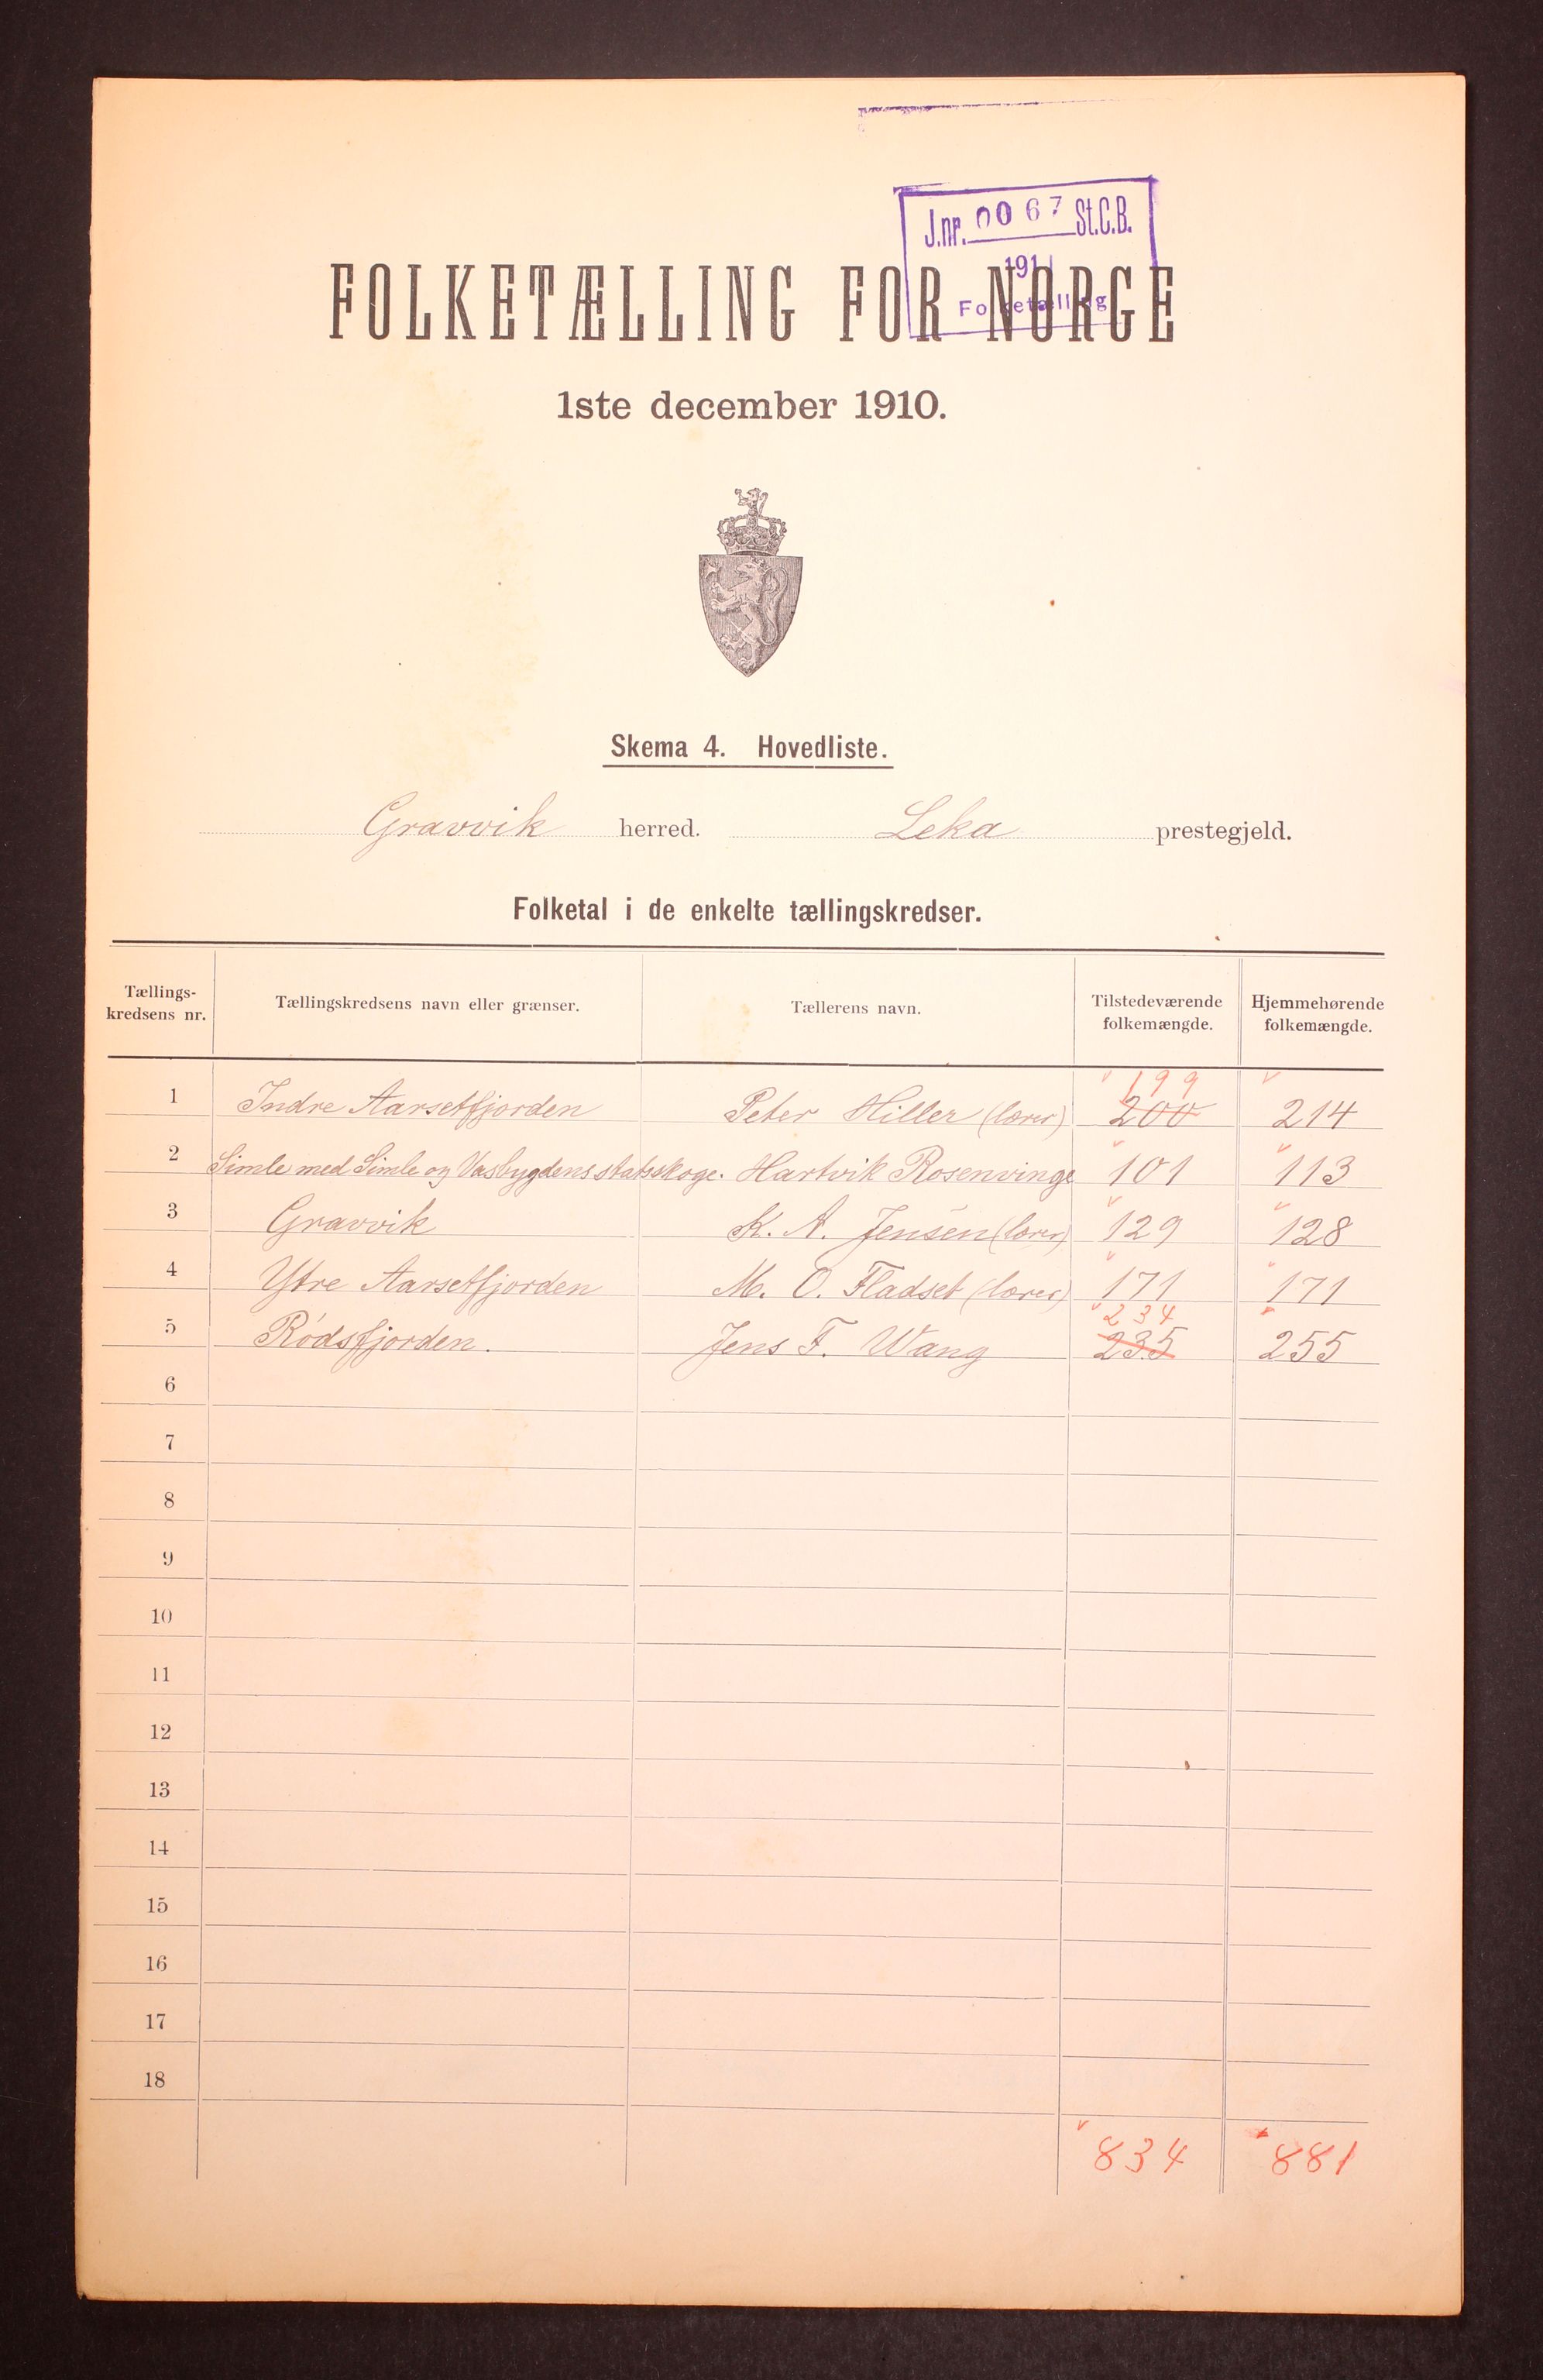 J.nr. 0067 St.C.B.
1911
Folketælling
FOLKETÆLLING FOR NORGE
1ste december 1910.
Skema 4. Hovedliste.
Gravvik herred. Leka prestegjeld.
Folketal i de enkelte tællingskredser.
Tællings-kredsens nr. Tællingskredsens navn eller grænser. Tællerens navn. Tilstedeværende folkemængde. Hjemmehørende folkemængde.
199
1 Indre Aarsetfjorden Peter Hiller (lærer) 200 214
2 Simle med Simle og Vasbygdens statsskoge. Hartvik Rosenvinge 101 113
3 Gravvik K. A. Jensen (lærer) 129 128
4 Ytre Aarsetfjorden M. O. Fladset (lærer) 171 171
234
5 Rødsfjorden. Jens F. Wang 235 255
6
7
8
9
10
11
12
13
14
15
16
17
18
834 881